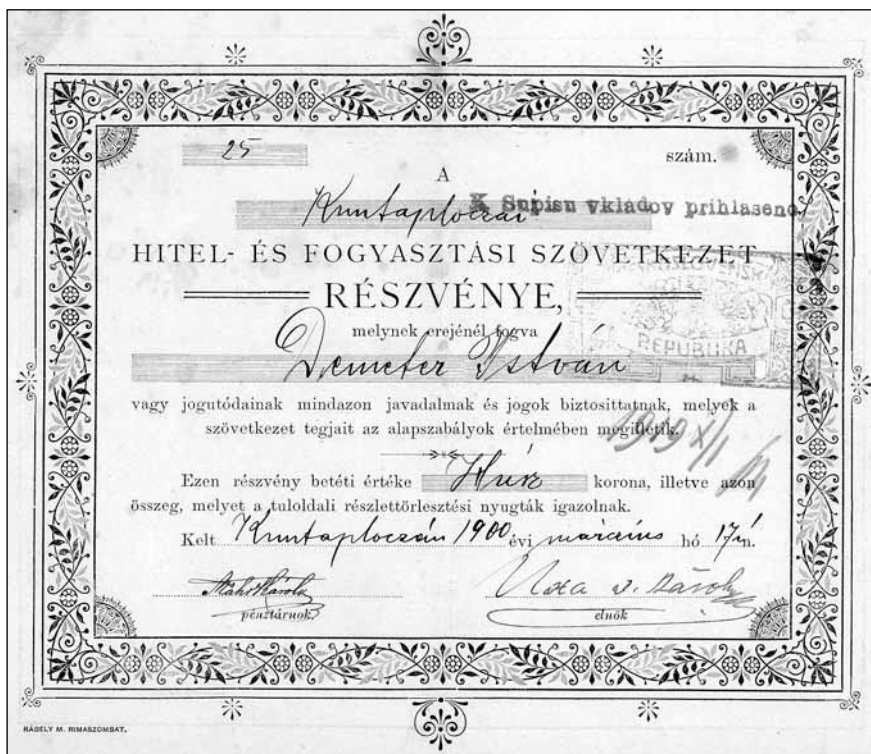 25 szám.
A
Kuntaploczai
K Supisu vkládov prihlaseno.
HITEL- ÉS FOGYASZTÁSI SZÖVETKEZET
RÉSZVÉNYE,
REPUBLIKA
melynek erejénél fogva
Demeter István
vagy jogutódainak mindazon javadalmak és jogok biztosittatnak, melyek a
szövetkezet tegjait az alapszabályok értelmében megilletik.
1919 XI/1
Ezen részvény betéti értéke Húsz korona, illetve azon
összeg, melyet a tuloldali részlettörlesztési nyugták igazolnak.
Kelt Kuntaploczán 1900 évi március hó 17én.
Károly
pénztárnok. elnök
RÁBELY M. RIMASZOMBAT.